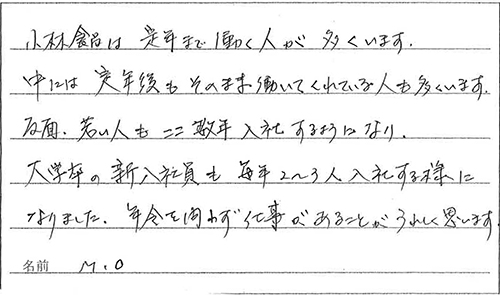 小林食品は 定年まで働く人が 多くいます.
中には 定年後も そのまま働いてくれている人も多くいます.
反面. 若い人も ここ数年 入社するようになり.
大学卒の 新入社員も 毎年2〜3人 入社する様に
なりました. 年令を問わず 仕事が あることがうれしく思います.
名前 M.O